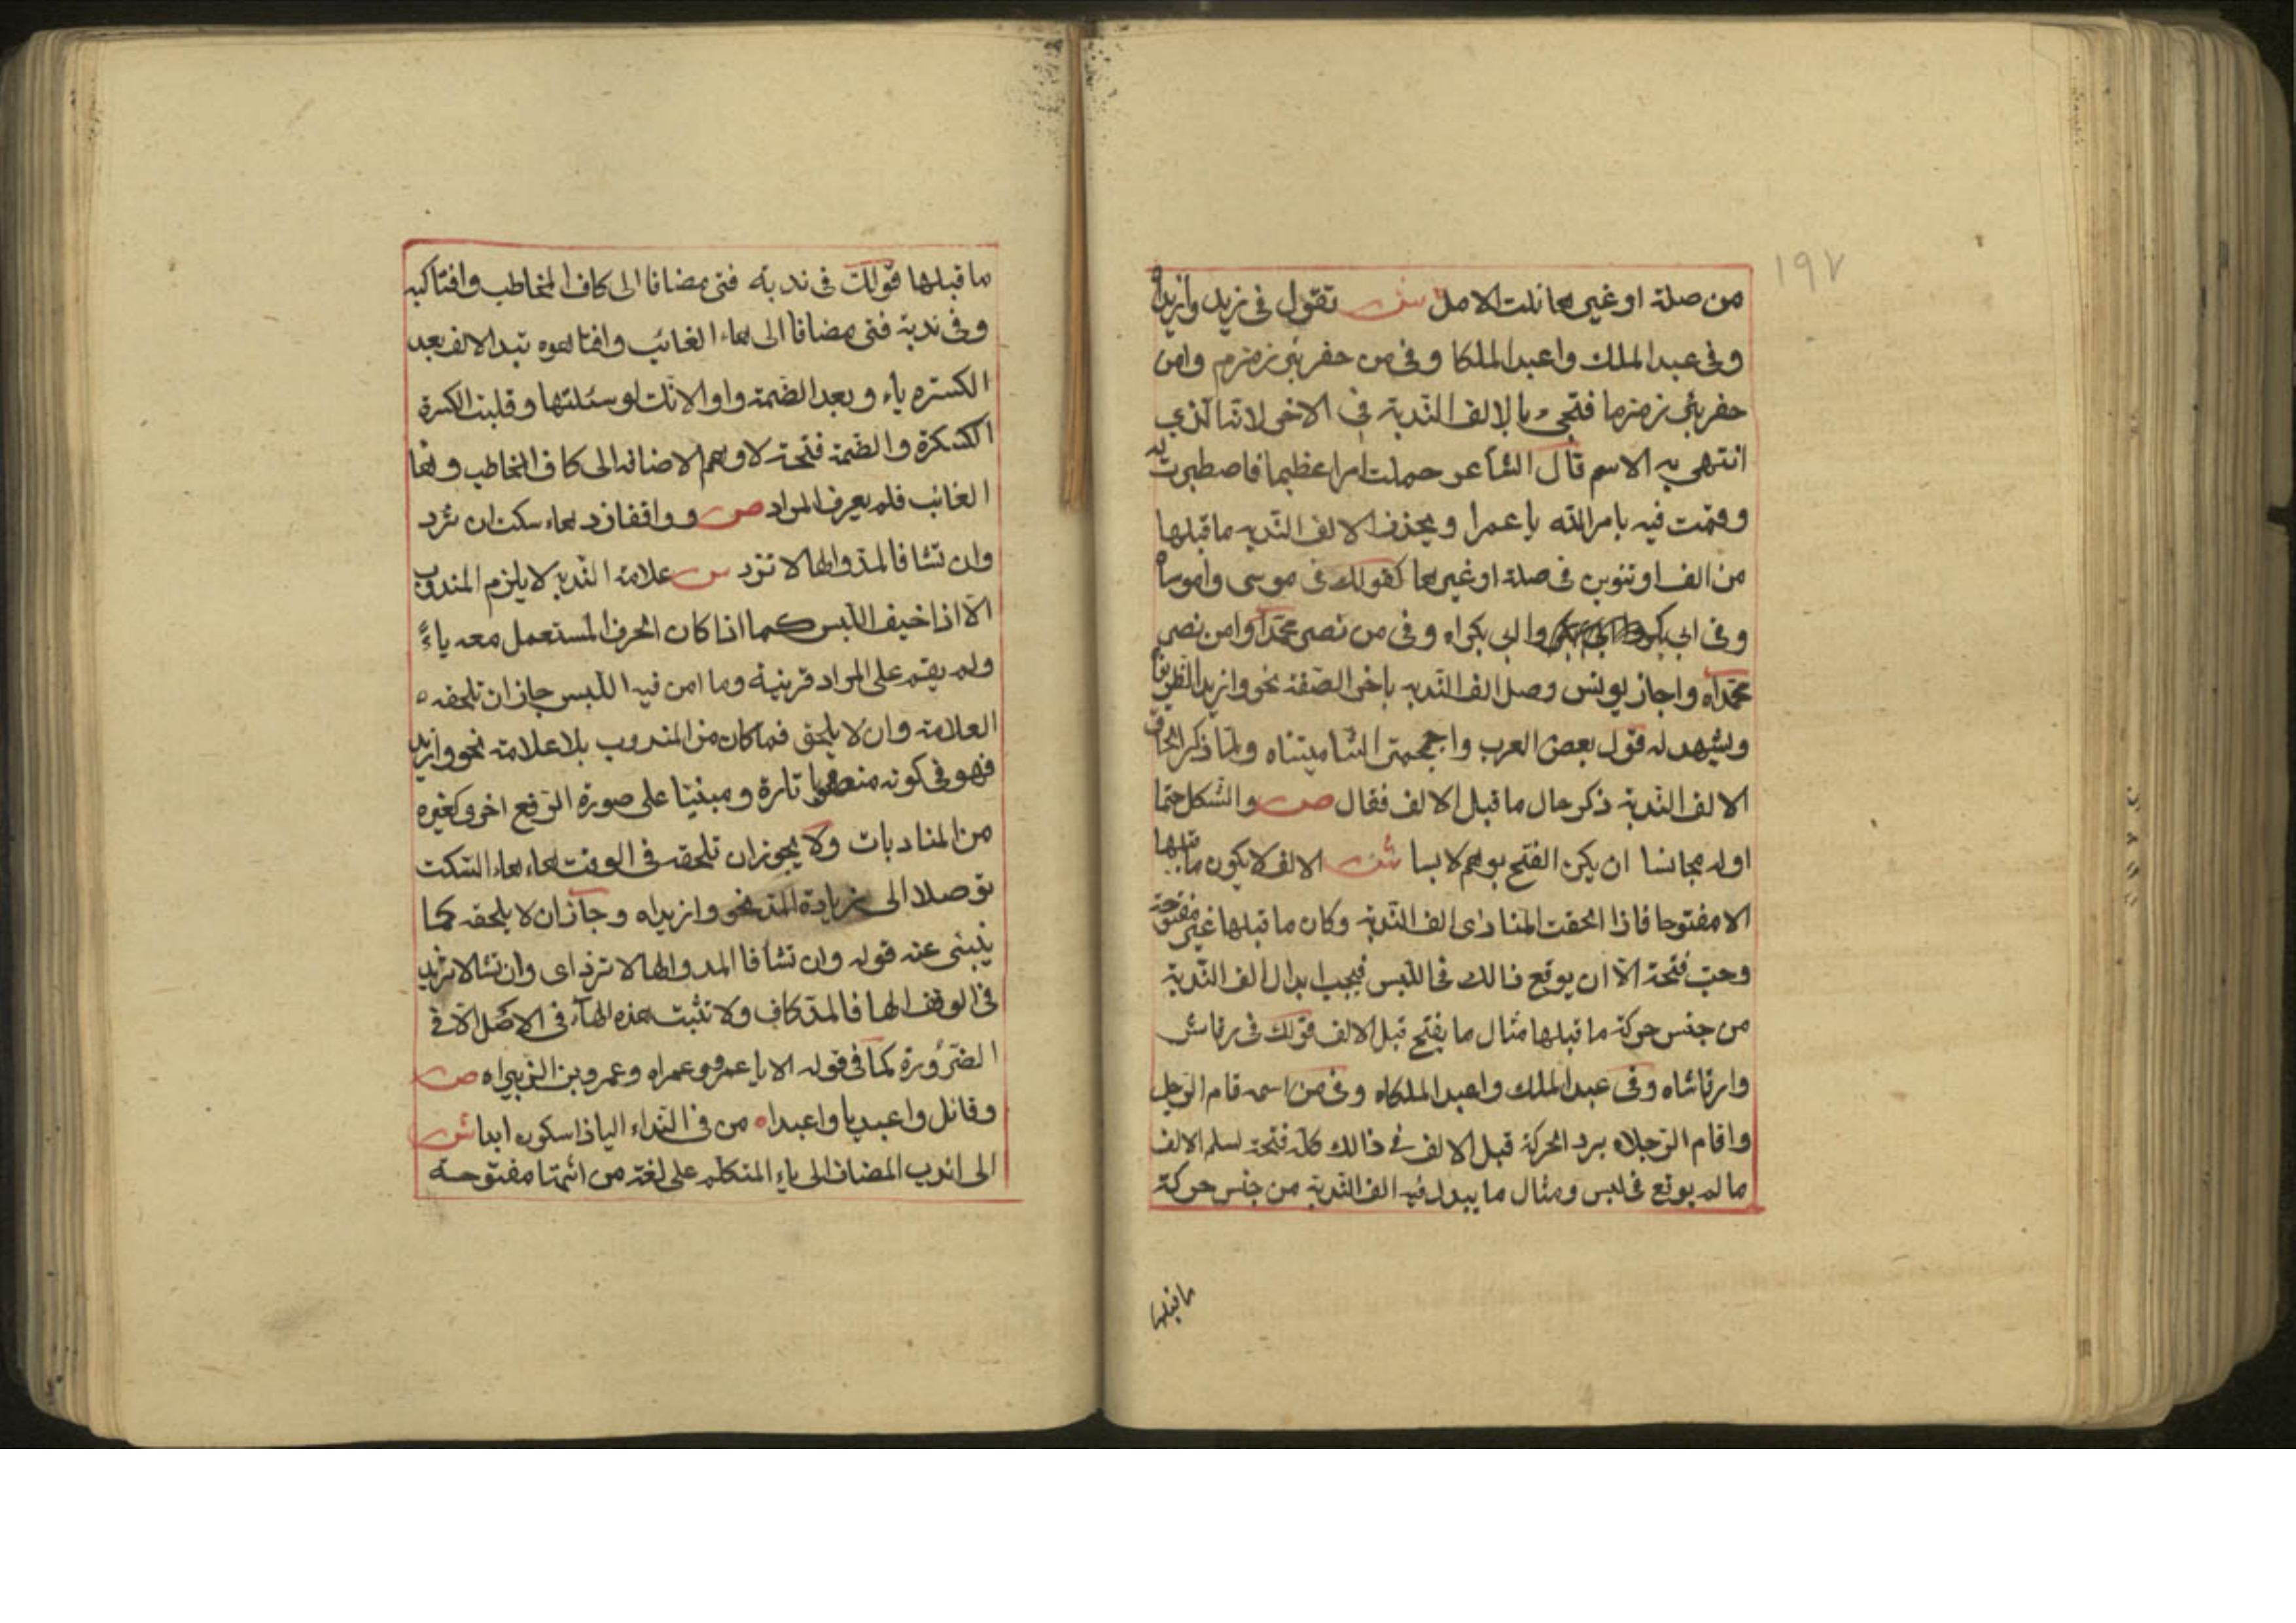 ١٩٧
من صلة او غيرها نلت الامل ش تقول في زيد وازيداه
وفي عبد الملك واعبد الملكا وفي من حفر بئر زمزم وامن
حفر بئر زمزما فتجيء بالالف الندبة في الاخر لانّها الذي
انتهى به الاسم قال الشاعر حملت امرا عظيما فاصطبرت له
وقمت فيه بامر الله يا عمرا ويحذف الالف الندبة ما قبلها
من الف او تنوين في صلة او غيرها كقولك في موسى واموساه
وفي ابي بكر وا ابي بكراه وفي من نصر محمّدا وامن نصر
محمّداه واجاز يونس وصل الف الندبة باخر الصفة نحو وازيد الظريفاه
ويشهد له قول بعض العرب واجمجمتي الشاميتناه ولما ذكر الحاق
الالف الندبة ذكر حال ما قبل الالف فقال ص والشكل حتما
اوله مجانسا ان يكن الفتح بوهم لابسا ش الالف لا يكون ما قبلها
الا مفتوحا فاذا الحقت المنادى الف الندبة وكان ما قبلها غير مفتوحة
وجب فتحة الّا ان يوقع ذالك في اللبس فيجب ابدال الف الندبة
من جنس حركة ما قبلها مثال ما يفتح قبل الالف قولك في رقاش
وارقاشاه وفي عبد الملك واعبد الملكاه وفي من اسمه قام الرجل
واقام الرجلاه برد الحركة قبل الالف في ذالك كله فتحة لسلم الالف
ما لم يوقع في لبس ومثال ما يبدل فيه الف الندبة من جنس حركة
ما قبلها
ما قبلها قولك في ندبة فتى مضافا الى كاف المخاطب وافتاكيه
وفي ندبة فتى مضافا الى هاء الغائب وافتاهوه تبد الالف بعد
الكسرة ياء وبعد الضمة واو الانّك لو سئلتها وقلبت الكسرة
الكسكرة والضمة فتحة لاوهم الاضافه الى كاف المخاطب وهما
الغائب فلم يعرف المراد ص وواقفا زد هاء سكت ان ترد
وان تشا فالمدّ والها لا تزد ش علامة الندبة لا يلزم المندوب
الّا اذا خيف اللبس كما اذا كان الحرف المستعمل معه ياءً
ولم يقم على المراد قرينة وما امن فيه اللبس جاز ان تلحقه
العلامة وان لا يلحق فما كان من المندوب بلا علامة نحو وازيد
فهو في كونه منصوبا تارة ومبنيا على صورة الرفع اخرى كغيره
من المنادبات ولا يجوز ان تلحقه في الوقف هاء هاء السكت
توصلا الى زيادة المدّ نحو وازيداه وجاز ان لا يلحقه كما
ينبئ عنه قوله وان تشا فالمد والها لا تزد اى وان تشا لا تزيد
في الوقف الها فالمدّ كاف ولا تثبت هذه الهاء في الاصل الّا في
الضرورة كما في قوله الا يا عمرو عمراه وعمرو بن الزبيراه ص
وقائل واعبديا واعبداه من في النداء اليا ذا سكون ابدا ش
الى اندب المضاف الى ياء المتكلم على لغة من اثبتها مفتوحة